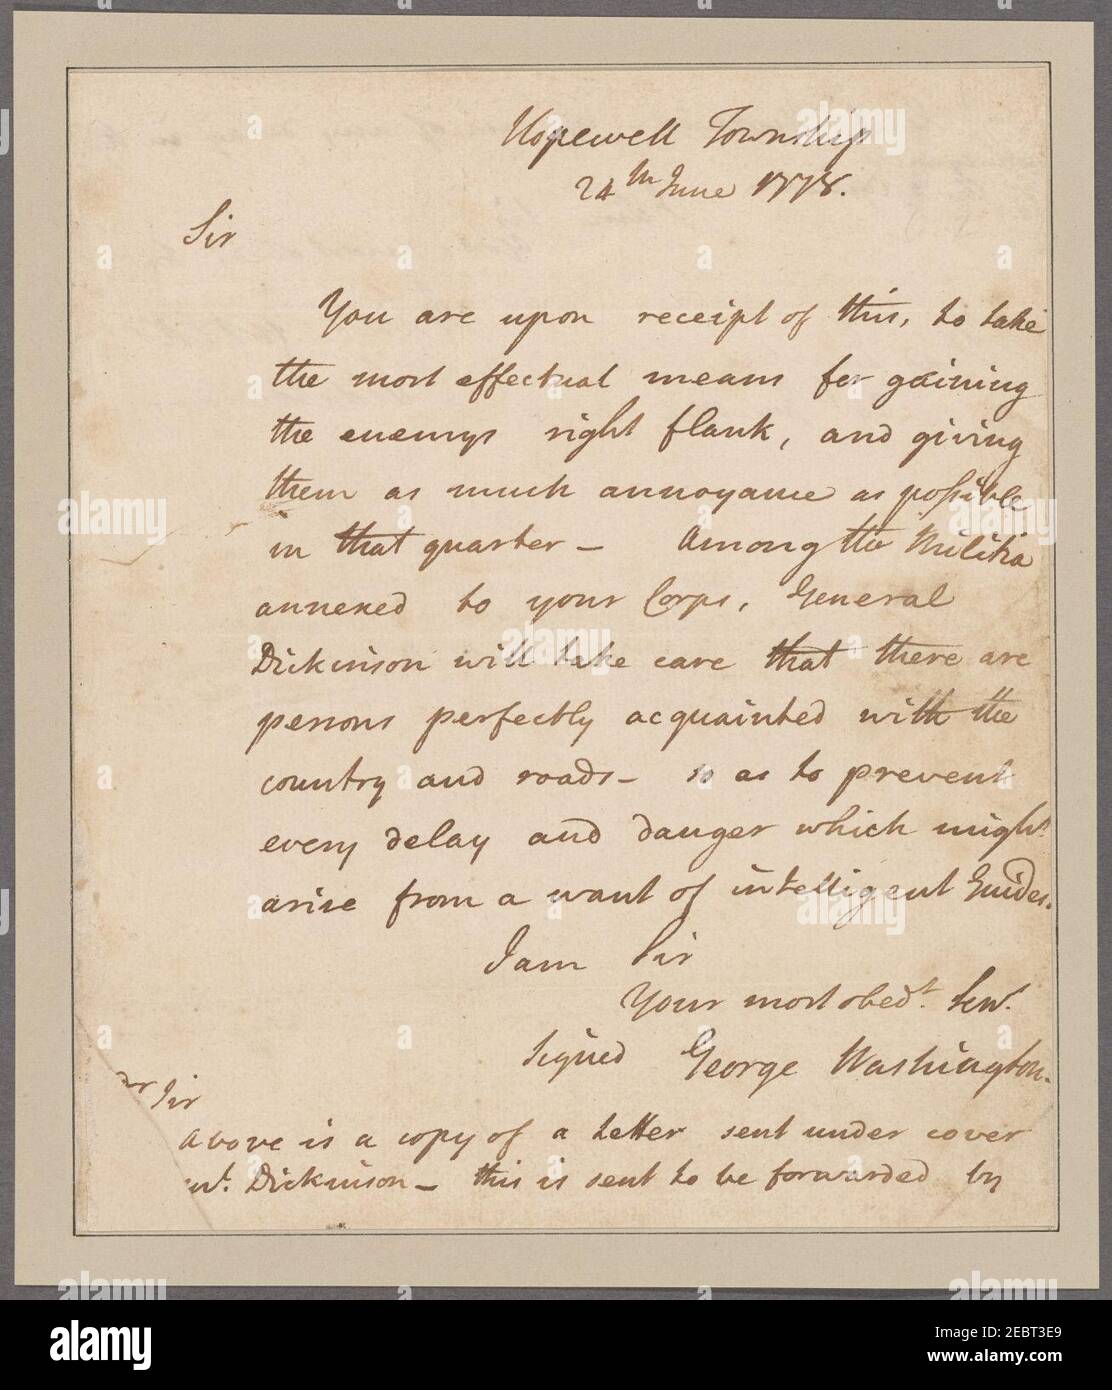 Hopewell Township
24th June 1778.
Sir
You are upon receipt of this, to take
the most effectual means for gaining
the enemys right flank, and giving
them as much annoyance as possible
in that quarter — Among the Militia
annexed to your Corps, General
Dickinson will take care that there are
persons perfectly acquainted with the
country and roads — so as to prevent
every delay and danger which might
arise from a want of intelligent Guides.
I am Sir
Your most obedt. Servt.
signed George Washington.
Sir
above is a copy of a letter sent under cover
Dickinson — this is sent to be forwarded by
alamy
Image ID: 2EBT3E9
www.alamy.com